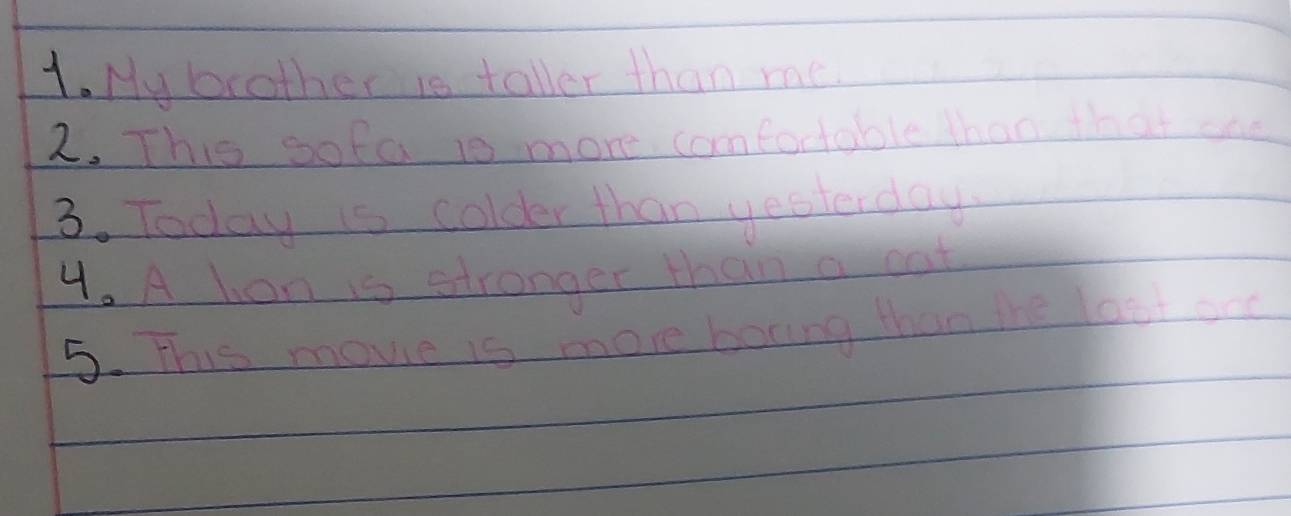 1. My brother is taller than me.
2. This sofa is more comfortable than that one
3. Today is colder than yesterday.
4. A lion is stronger than a cat
5. This movie is more boring than the last one